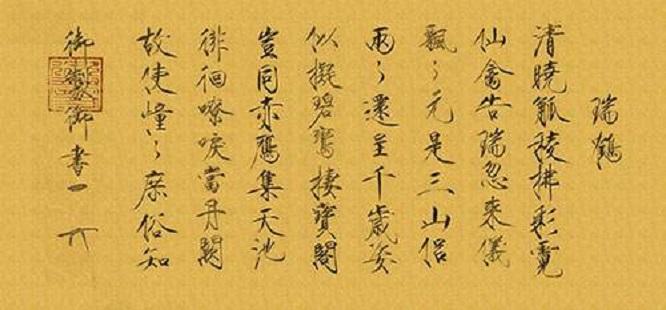 瑞鶴
清曉觚稜拂彩霓
仙禽告瑞忽來儀
飄〻元是三山侶
兩〻還呈千歲姿
似擬碧鸞棲寶閣
豈同赤鴈集天池
徘徊嘹唳當丹闕
故使憧〻庶俗知
御製御書